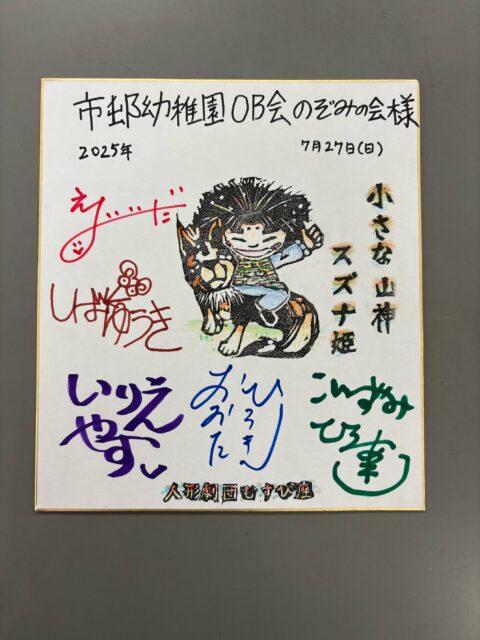 市邨幼稚園OB会のぞみの会様
2025年 7月27日(日)
小さな山神
スズナ姫
しばゆうき
いりえ
やすし
おおた
ひろき
こいずみ
ひろ
人形劇団むすび座